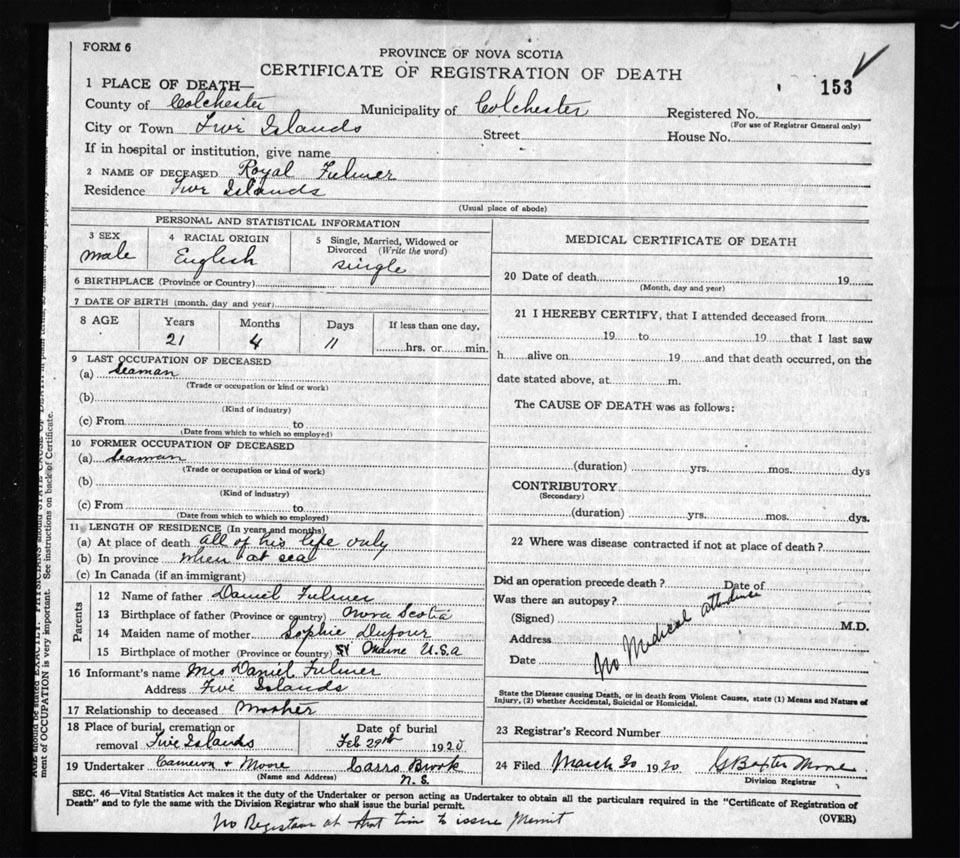 FORM 6
PROVINCE OF NOVA SCOTIA
CERTIFICATE OF REGISTRATION OF DEATH
153
1 PLACE OF DEATH—
County of Colchester Municipality of Colchester Registered No.
(For use of Registrar General only)
City or Town Five Islands Street House No.
If in hospital or institution, give name
2 NAME OF DECEASED Royal Fulmer
Residence Five Islands
(Usual place of abode)
PERSONAL AND STATISTICAL INFORMATION
3 SEX 4 RACIAL ORIGIN 5 Single, Married, Widowed or Divorced (Write the word)
male English single
6 BIRTHPLACE (Province or Country)
7 DATE OF BIRTH (month, day and year)
8 AGE Years Months Days If less than one day,
21 4 11 hrs. or min.
9 LAST OCCUPATION OF DECEASED
(a) Seaman
(Trade or occupation or kind or work)
(b)
(Kind of industry)
(c) From to
(Date from which to which so employed)
10 FORMER OCCUPATION OF DECEASED
(a) Seaman
(Trade or occupation or kind of work)
(b)
(Kind of industry)
(c) From to
(Date from which to which so employed)
11 LENGTH OF RESIDENCE (In years and months)
(a) At place of death all of his life only
(b) In province when at sea
(c) In Canada (if an immigrant)
Parents
12 Name of father Daniel Fulmer
13 Birthplace of father (Province or country) Nova Scotia
14 Maiden name of mother Sophie Dufour
15 Birthplace of mother (Province or country) Maine U.S.A
16 Informant's name Mrs Daniel Fulmer
Address Five Islands
17 Relationship to deceased Mother
18 Place of burial, cremation or removal Five Islands Date of burial Feb 29th 1920
19 Undertaker Cameron + Moore Carrs Brook
(Name and Address) N.S.
MEDICAL CERTIFICATE OF DEATH
20 Date of death 19
(Month, day and year)
21 I HEREBY CERTIFY, that I attended deceased from
19 to 19 that I last saw
h alive on 19 and that death occurred, on the
date stated above, at m.
The CAUSE OF DEATH was as follows:
(duration) yrs. mos. dys
CONTRIBUTORY
(Secondary)
(duration) yrs. mos. dys.
22 Where was disease contracted if not at place of death?
Did an operation precede death? Date of
Was there an autopsy?
(Signed) M.D.
Address
Date
No Medical attendance
State the Disease causing Death, or in death from Violent Causes, state (1) Means and Nature of
Injury, (2) whether Accidental, Suicidal or Homicidal.
23 Registrar's Record Number
24 Filed March 30 1920 G Baxter Moore
Division Registrar
SEC. 46—Vital Statistics Act makes it the duty of the Undertaker or person acting as Undertaker to obtain all the particulars required in the "Certificate of Registration of
Death" and to fyle the same with the Division Registrar who shall issue the burial permit.
(OVER)
No Registrar at that time to issue Permit
PHYSICIANS should STATE CAUSE OF DEATH in plain terms
ment of OCCUPATION is very important. See instructions on back of Certificate.